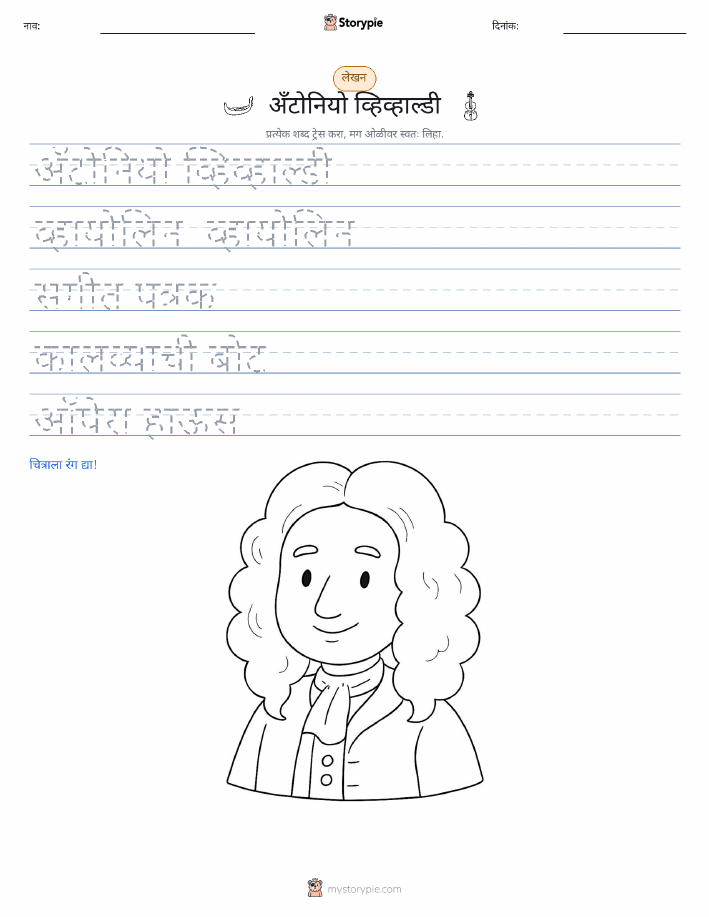 नाव:
Storypie
दिनांक:
लेखन
अँटोनियो व्हिव्हाल्डी
प्रत्येक शब्द ट्रेस करा, मग ओळीवर स्वतः लिहा.
अँटोनियो व्हिव्हाल्डी
व्हायोलिन व्हायोलिन
संगीत पत्रक
कालव्याची बोट
ऑपेरा हाऊस
चित्राला रंग द्या!
mystorypie.com